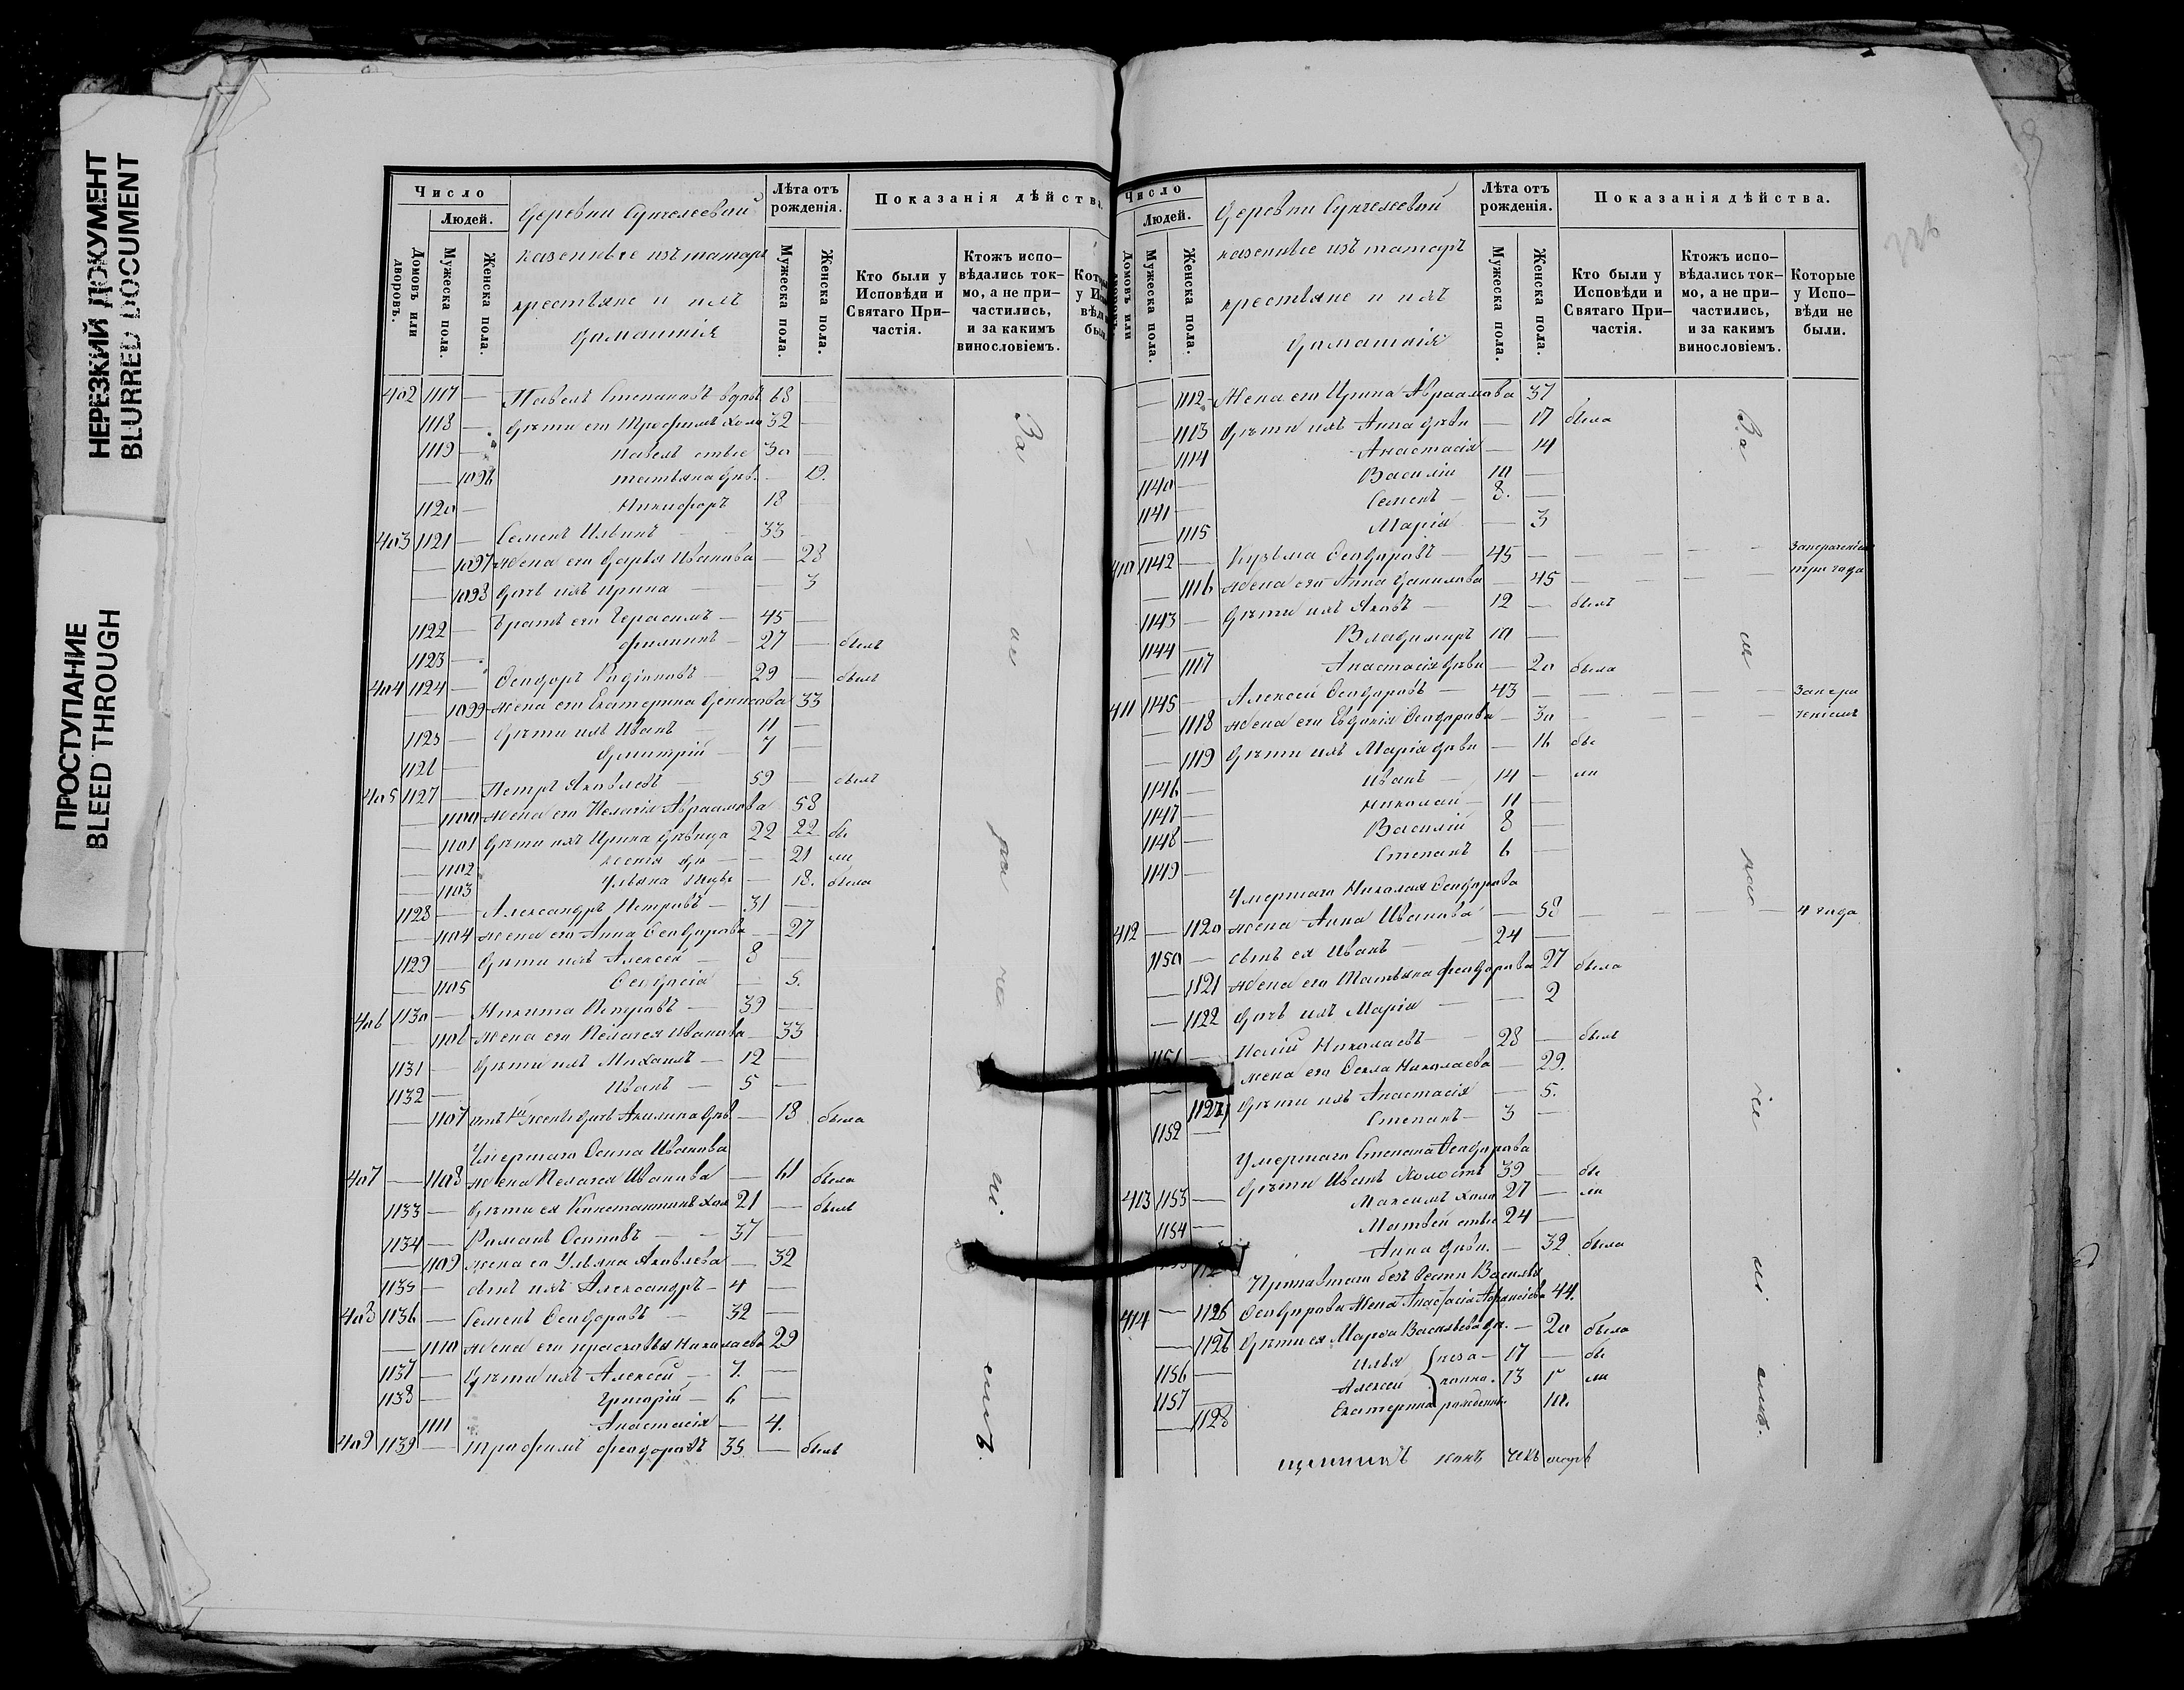 НЕРЕЗКИЙ ДОКУМЕНТ
BLURRED DOCUMENT
ПРОСТУПАНИЕ
BLEED THROUGH
Число
Людей.
Домовъ или дворовъ.
Мужеска пола.
Женска пола.
Деревни
казенные изъ татаръ
крестьяне и ихъ
домашнія
Лѣта отъ рожденія.
Мужеска пола.
Женска пола.
Показанія дѣйства.
Кто были у Исповѣди и Святаго Причастія.
Ктожъ исповѣдались токмо, а не причастились, и за какимъ винословіемъ.
402 1117 — Павелъ Степановъ вдовъ 68 —
1118 — Дѣти его Трофимъ холо 32 —
1119 — Павелъ 30 —
— 1096 Татьяна дѣв. — 19.
1120 — Никифоръ 18 —
403 1121 — Семенъ Ильинъ 33 —
— 1097 Жена его Дарья Иванова — 28
— 1098 Дочь ихъ Ирина — 3
1122 — Братъ его Герасимъ — 45 —
1123 — Филиппъ — 27 — былъ
404 1124 — Ѳеодоръ Родіоновъ — 29 — былъ
— 1099 Жена его Екатерина Денисова 33
1125 — Дѣти ихъ Иванъ — 11 —
1126 — Дмитрій — 7 —
405 1127 — Петръ Яковлевъ 59 — былъ
— 1100 Жена его Пелагія Авраамова 58
— 1101 Дѣти ихъ Ирина дѣвица 22 22 бы
— 1102 Ксенія дѣ — 21 ли
— 1103 Ульяна — 18. была
1128 — Александръ Петровъ — 31 —
— 1104 Жена его Анна Ѳеодорова — 27
1129 — Дѣти ихъ Алексѣй — 8 —
— 1105 Ѳеодосія — 5.
406 1130 — Никита Петровъ — 39 —
— 1106 Жена его Пелагея Иванова — 33
1131 — Дѣти ихъ Михаилъ — 12 —
1132 — Иванъ — 5 —
— 1107 отъ 1й жены дочь Акилина дѣв. — 18 была
Умершаго Осипа Иванова
407 — 1108 Жена Пелагея Иванова — 61 была
1133 — Дѣти ея Константинъ хол 21 — былъ
1134 — Романъ Осиповъ — 37 —
— 1109 Жена его Ульяна Яковлева — 32
1135 — сынъ ихъ Александръ — 4 —
408 1136 — Семенъ Ѳеодоровъ — 32 —
— 1110 Жена его Прасковья Николаева 29
1137 — Дѣти ихъ Алексѣй — 7. —
1138 — Григорій — 6 —
1111 Анастасія — 4.
409 1139 — Трофимъ Феодоровъ 35 — былъ
За
ма
ро
че
ні
емъ.
Число
Людей.
Домовъ или
Мужеска пола.
Женска пола.
Деревни
казенные изъ татаръ
крестьяне и ихъ
домашнія
Лѣта отъ рожденія.
Мужеска пола.
Женска пола.
Показанія дѣйства.
Кто были у Исповѣди и Святаго Причастія.
Ктожъ исповѣдались токмо, а не причастились, и за какимъ винословіемъ.
Которые у Исповѣди не были.
— 1112 Жена его Ирина Авраамова 37
— 1113 Дѣти ихъ Анна дѣви — 17 была
— 1114 Анастасія — 14
1140 — Василій 10 —
1141 — Семенъ — 8. —
1115 Марія — 3
410 1142 — Кузьма Ѳеодоровъ — 45 —
— 1116 Жена его Анна Данилова — 45 три года
1143 — Дѣти ихъ Яковъ — 12 — былъ
1144 — Владимиръ 10 —
— 1117 Анастасія дѣви — 20 была
411 1145 — Алексѣй Ѳеодоровъ — 43 —
— 1118 Жена его Евдокія Ѳеодорова — 30
— 1119 Дѣти ихъ Марія дѣви — 16 бы
1146 — Иванъ — 14 — ли
1147 — Николай — 11 —
1148 — Василій 8 —
1149 — Степанъ 6 —
Умершаго Николая Ѳеодорова
412 — 1120 Жена Анна Иванова — 58 4 года
1150 — сынъ ея Иванъ — 24 —
— 1121 Жена его Татьяна Феодорова 27 была
— 1122 Дочь ихъ Марія — 2
1151 — Николаевъ — 28 — былъ
Жена его Ѳекла Николаева — 29.
Дѣти ихъ Анастасія — 5.
1152 — Степанъ — 3 —
Умершаго Степана Ѳеодорова
413 1153 — Дѣти Иванъ холостъ 39 — бы
1154 — Максимъ холо 27 — ли
Матвей 24 —
Анна дѣви. — 32 была
Пропавшаго безъ вести Василья
414 — 1126 Ѳеодорова Жена Анастасія Афанасіева 44.
— 1126 Дѣти ея Марѳа Васильева дѣ. — 20 была
1156 — Илья 17 — бы
1157 — Алексѣй 13 ли
— 1128 Екатерина 10.
За
ма
ро
че
ні
емъ.